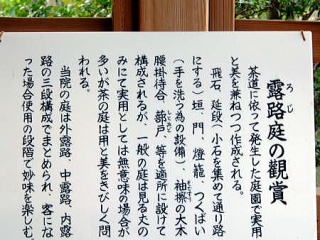 露路庭の観賞
ろじ
茶道に依って発生した庭園で実用
と美を兼ねつつ作成される。
飛石、延段(小石を集めて通り路
にする)垣、門、燈籠、つくばい
(手を洗う為の設備)、袖摺の大木
腰掛待合、蔀戸、等を適所に設けて
構成されるが、一般の庭は見る丈の
みにて実用としては無意味の場合が
多いが茶の庭は用と美をきびしく問
われる。
当院の庭は外露路、中露路、内露
路の三段構成でまとめられ、客にな
った場合使用の段階で妙味を楽しむ